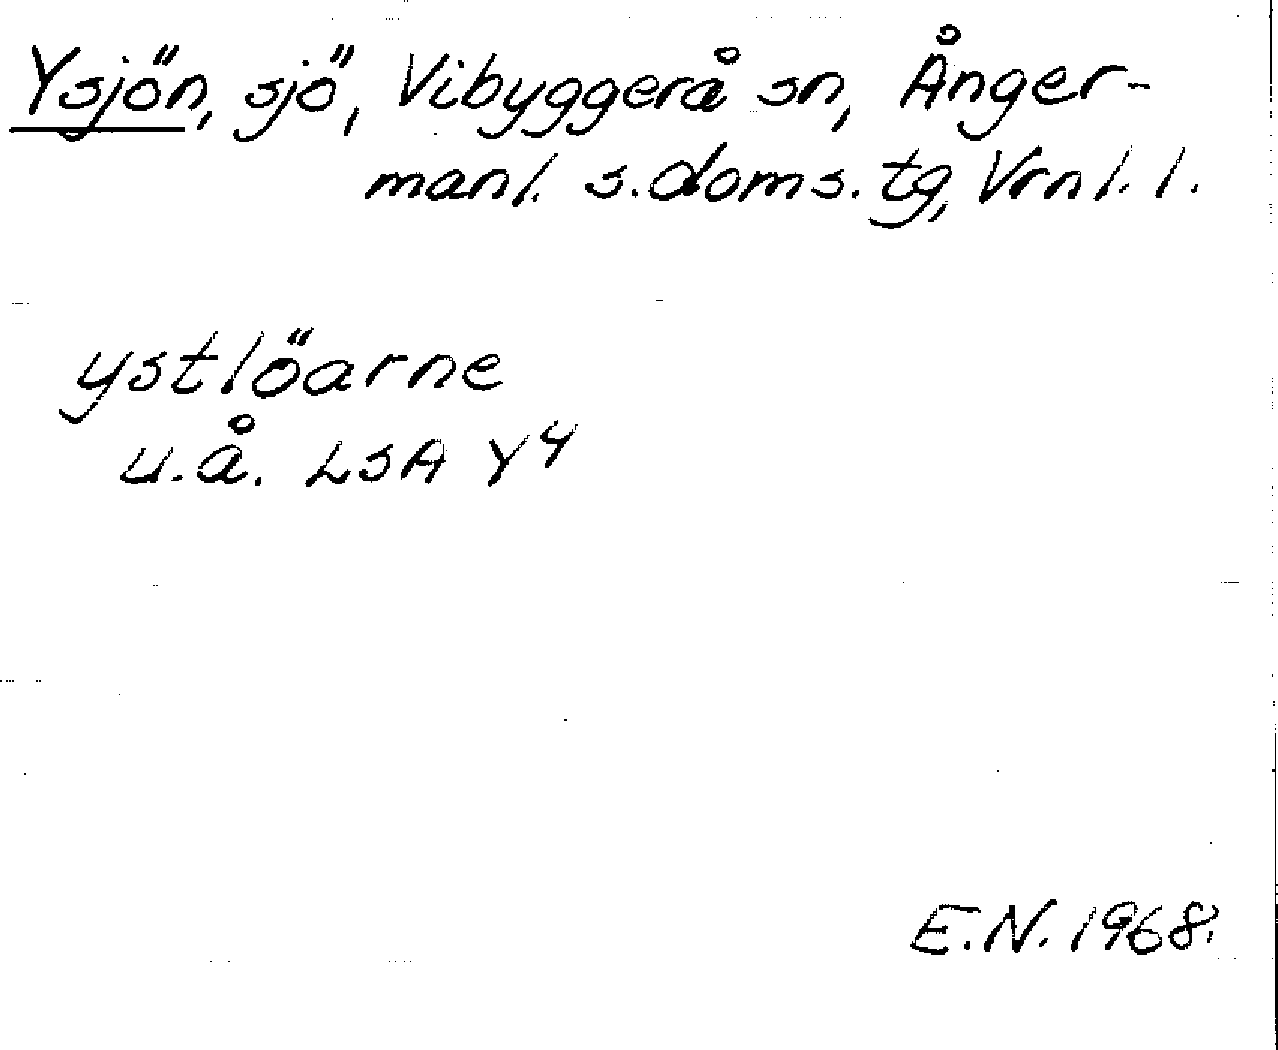 Ysjön, sjö, Vibyggerå sn, Ånger-
manl. s. doms. tg, Vrnl. l.
ystlöarne
u.å. LSA Y4
E.N. 1968.